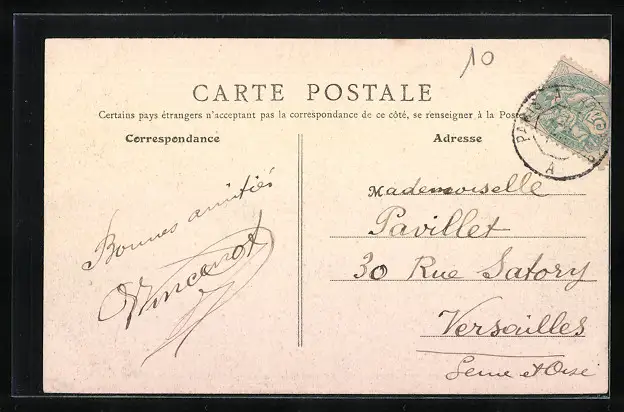 10
CARTE POSTALE
Certains pays étrangers n'acceptant pas la correspondance de ce côté, se renseigner à la Poste
Correspondance
Adresse
Bonnes amitiés
Vincenot
Mademoiselle
Pavillet
30 Rue Satory
Versailles
Seine et Oise
PARIS
A